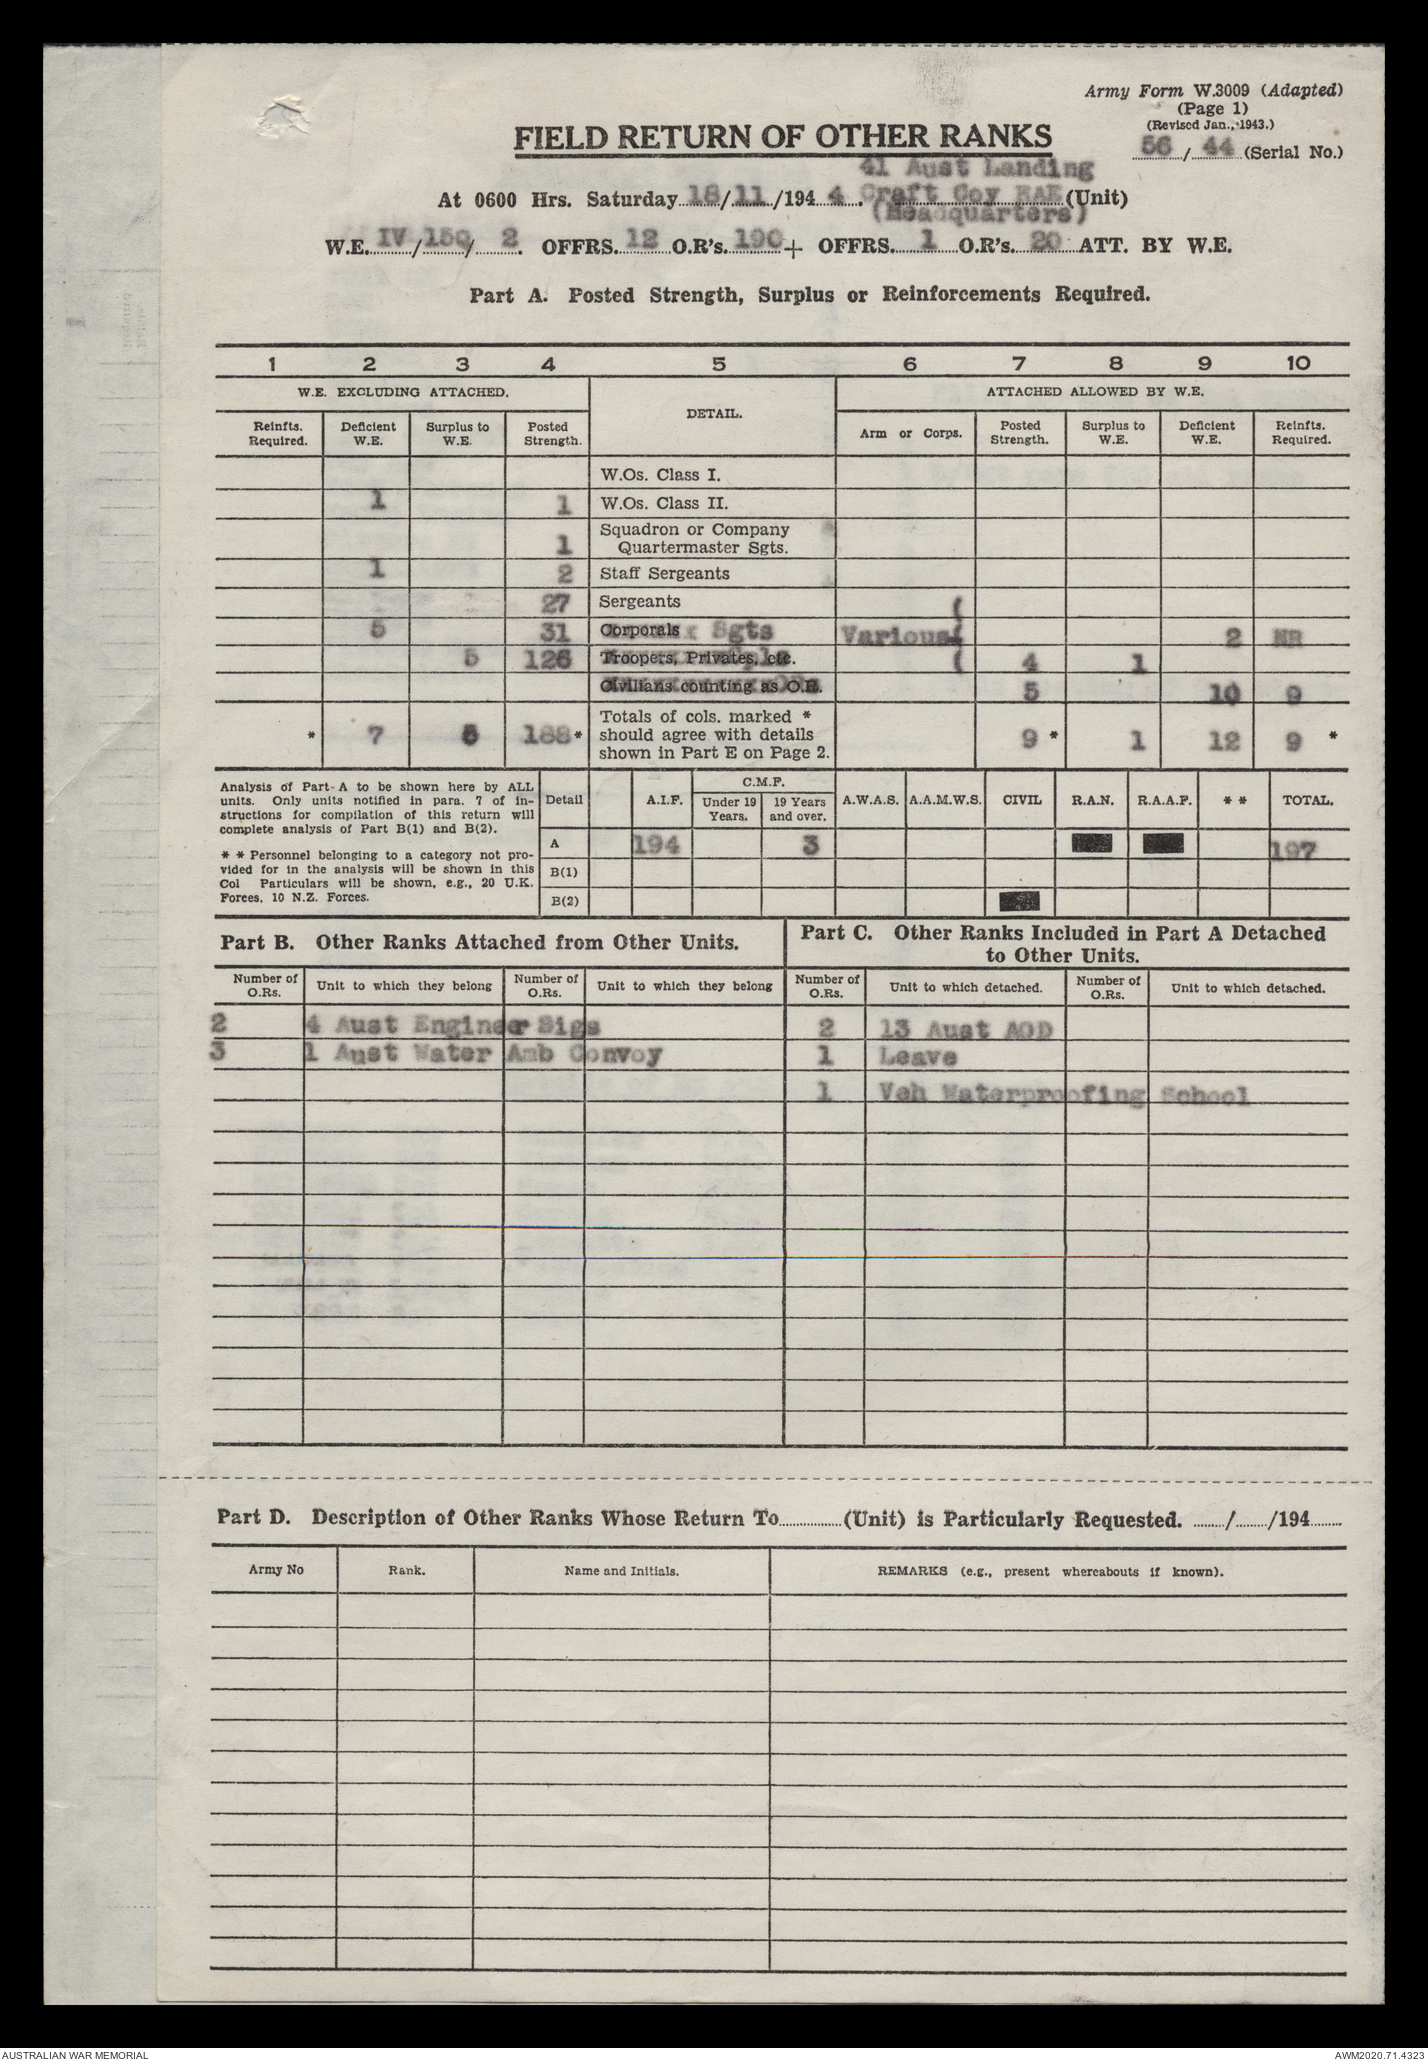 Army Form W.3009 (Adapted)
(Page 1)
(Revised Jan., 1943.)
56 / 44 (Serial No.)
FIELD RETURN OF OTHER RANKS
41 Aust Landing
At 0600 Hrs. Saturday 18/11/1944. Craft Coy RAE (Unit)
(Headquarters)
W.E. IV/150/2. OFFRS. 12 O.R's. 190 + OFFRS. 1 O.R's. 20 ATT. BY W.E.
Part A. Posted Strength, Surplus or Reinforcements Required.
1 2 3 4 5 6 7 8 9 10
W.E. EXCLUDING ATTACHED. DETAIL. ATTACHED ALLOWED BY W.E.
Reinfts. Required. Deficient W.E. Surplus to W.E. Posted Strength. Arm or Corps. Posted Strength. Surplus to W.E. Deficient W.E. Reinfts. Required.
W.Os. Class I.
1 1 W.Os. Class II.
1 Squadron or Company Quartermaster Sgts.
1 2 Staff Sergeants
27 Sergeants (
5 31 Corporals Sgts Various( 2 NR
5 126 Troopers, Privates, etc. Cpls ( 4 1
Civilians counting as O.R. 5 10 9
* 7 5 188* Totals of cols. marked * should agree with details shown in Part E on Page 2. 9 * 1 12 9 *
Analysis of Part A to be shown here by ALL
units. Only units notified in para. 7 of in-
structions for compilation of this return will
complete analysis of Part B(1) and B(2).
* * Personnel belonging to a category not pro-
vided for in the analysis will be shown in this
Col Particulars will be shown, e.g., 20 U.K.
Forces, 10 N.Z. Forces.
Detail A.I.F. C.M.F. Under 19 Years. 19 Years and over. A.W.A.S. A.A.M.W.S. CIVIL R.A.N. R.A.A.F. * * TOTAL.
A 194 3 197
B(1)
B(2)
Part B. Other Ranks Attached from Other Units.
Number of O.Rs. Unit to which they belong Number of O.Rs. Unit to which they belong
2 4 Aust Engineer Sigs
3 1 Aust Water Amb Convoy
Part C. Other Ranks Included in Part A Detached
to Other Units.
Number of O.Rs. Unit to which detached. Number of O.Rs. Unit to which detached.
2 13 Aust AOD
1 Leave
1 Veh Waterproofing School
Part D. Description of Other Ranks Whose Return To.............(Unit) is Particularly Requested. ......./......./194.......
Army No Rank. Name and Initials. REMARKS (e.g., present whereabouts if known).
AUSTRALIAN WAR MEMORIAL AWM2020.71.4323